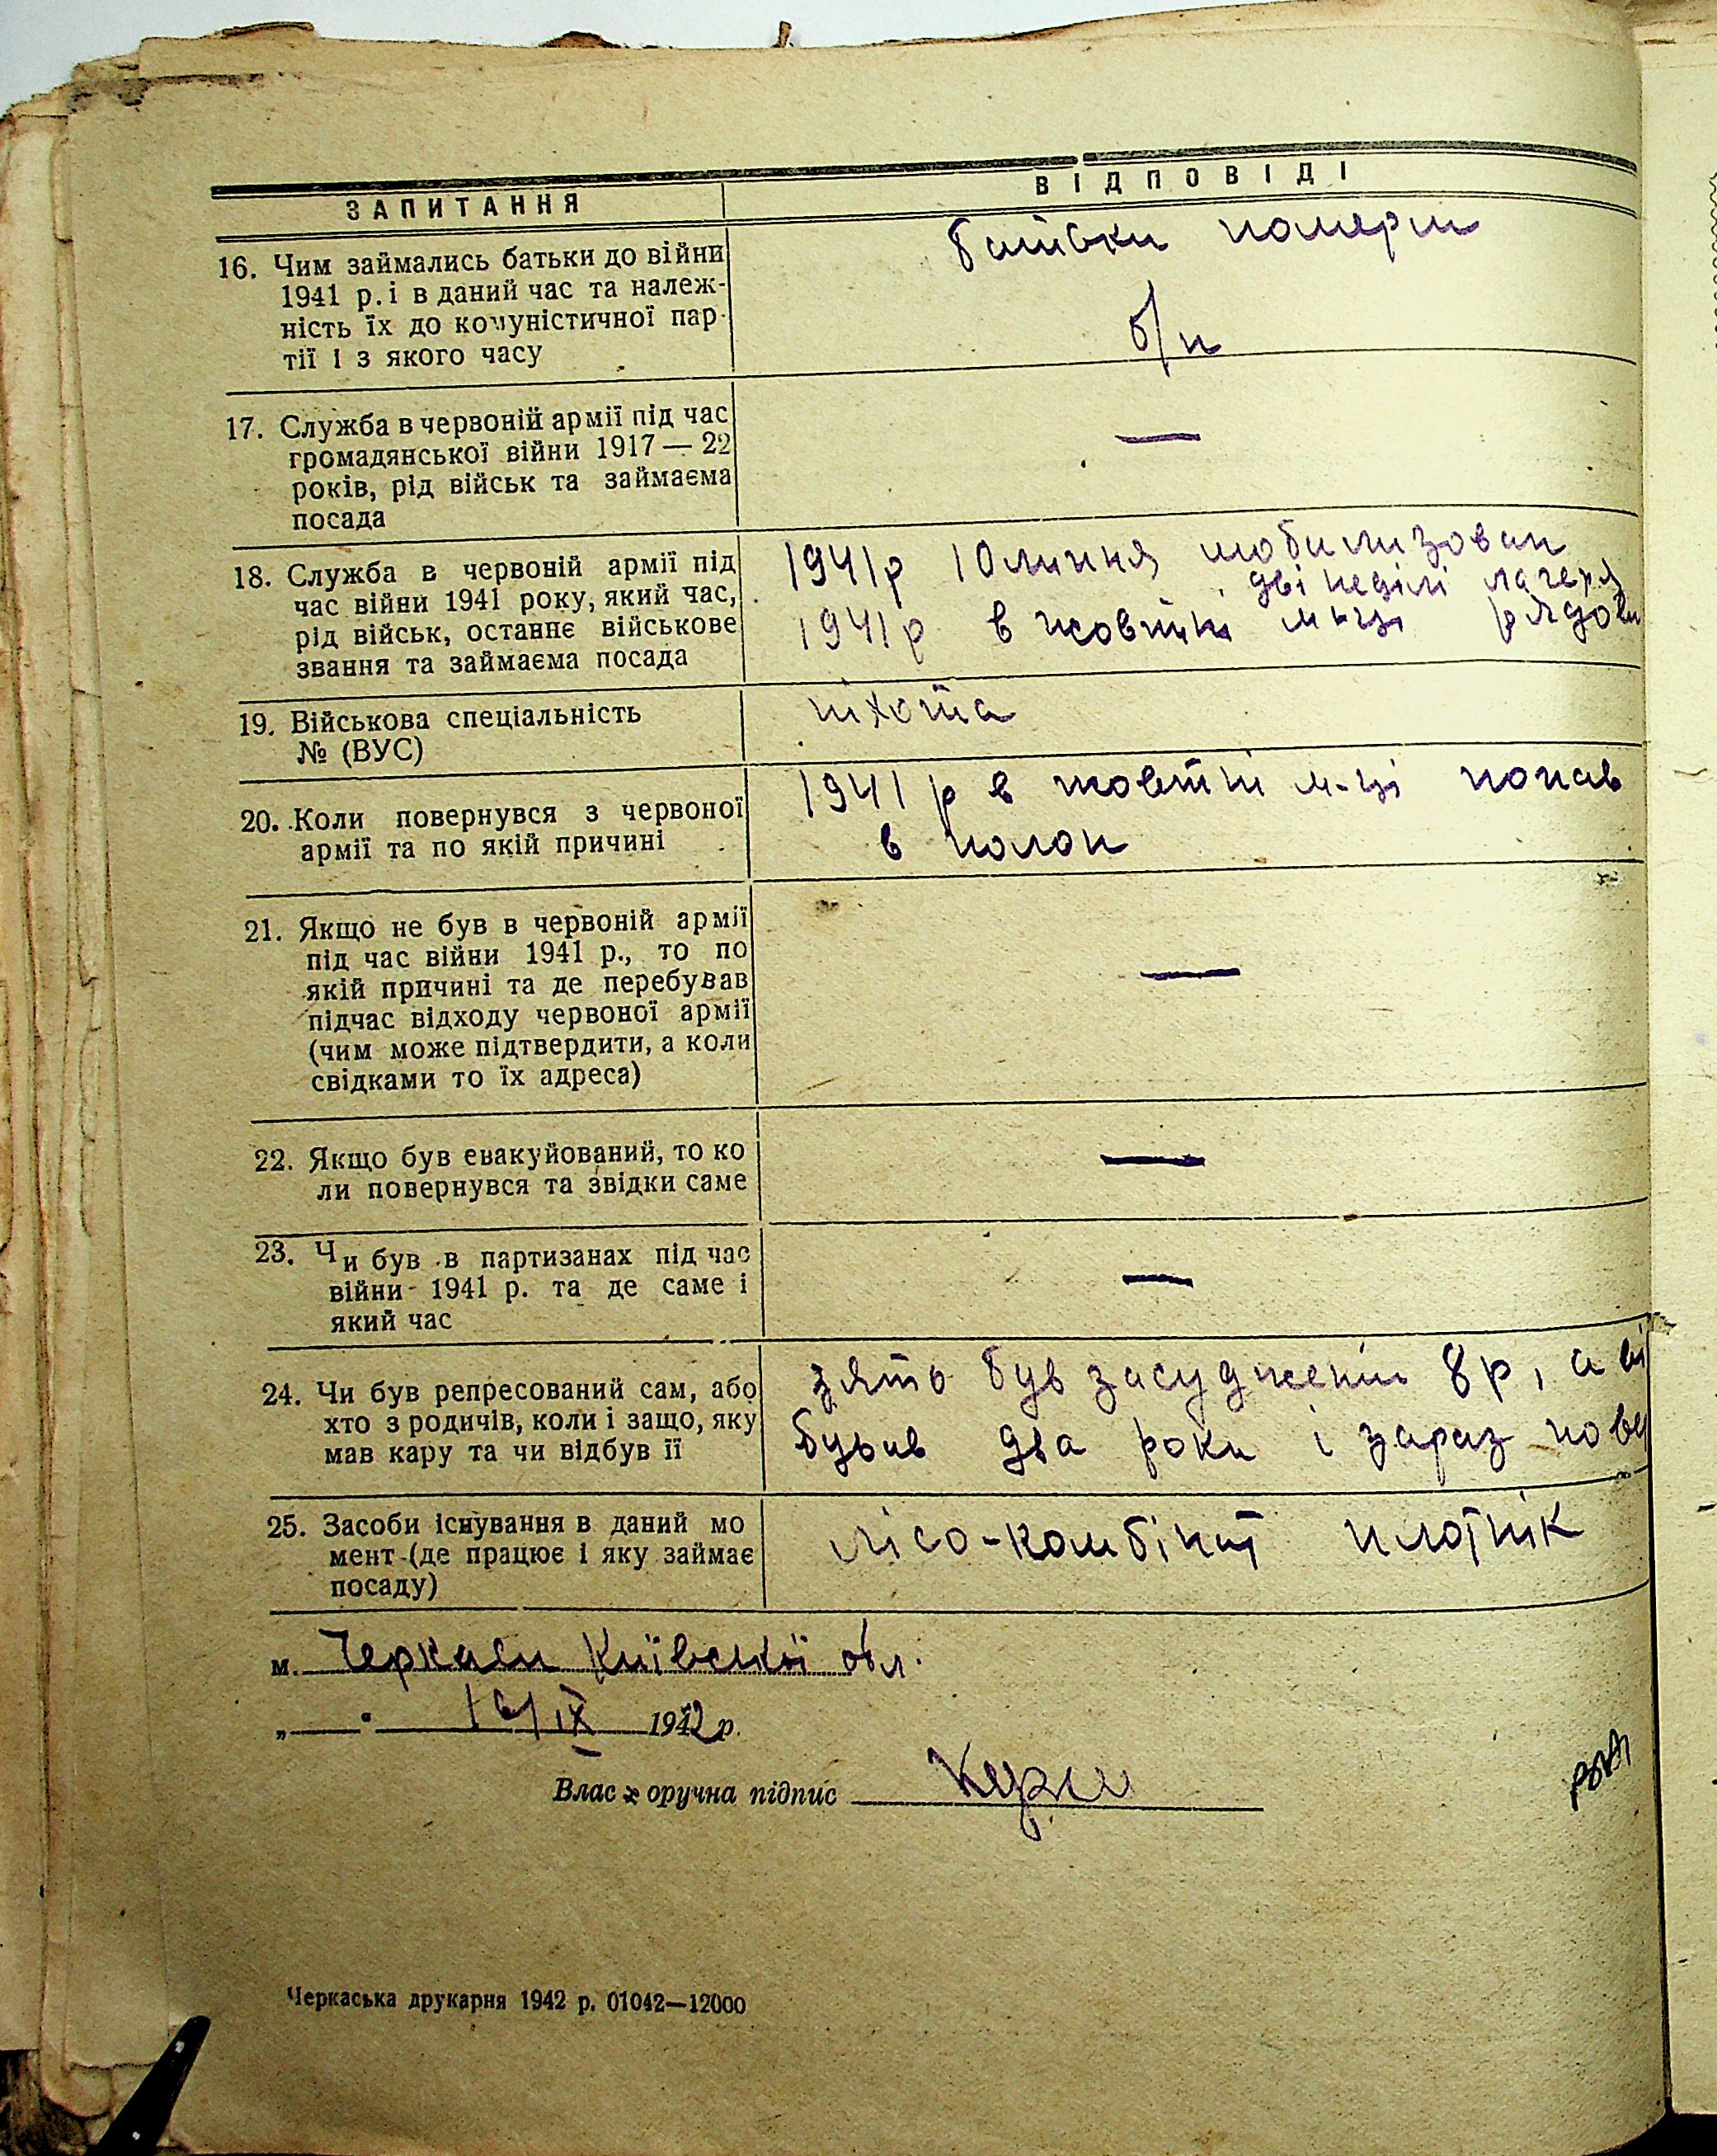 ЗАПИТАННЯ
ВІДПОВІДІ
16. Чим займались батьки до війни
1941 р. і в даний час та належ-
ність їх до комуністичної пар-
тії і з якого часу
батьки померли
б/п
17. Служба в червоній армії під час
громадянської війни 1917 — 22
років, рід військ та займаєма
посада
—
18. Служба в червоній армії під
час війни 1941 року, який час,
рід військ, останнє військове
звання та займаєма посада
1941р 10 липня мобилизован
дві неділі лагеря
1941р в жовтні м-ці рядови
19. Військова спеціальність
№ (ВУС)
піхота
20. Коли повернувся з червоної
армії та по якій причині
1941 р в жовтні м-ці попав
в полон
21. Якщо не був в червоній армії
під час війни 1941 р., то по
якій причині та де перебував
підчас відходу червоної армії
(чим може підтвердити, а коли
свідками то їх адреса)
—
22. Якщо був евакуйований, то ко
ли повернувся та звідки саме
—
23. Чи був в партизанах під час
війни 1941 р. та де саме і
який час
—
24. Чи був репресований сам, або
хто з родичів, коли і защо, яку
мав кару та чи відбув її
зять був засуджений 8р, а ві
бував два роки і зараз пове
25. Засоби існування в даний мо
мент (де працює і яку займає
посаду)
лісо-комбінат плотнік
м. Черкаси Київської обл.
„ — " IX 1942 р.
Влас оручна підпис
Черкаська друкарня 1942 р. 01042—12000